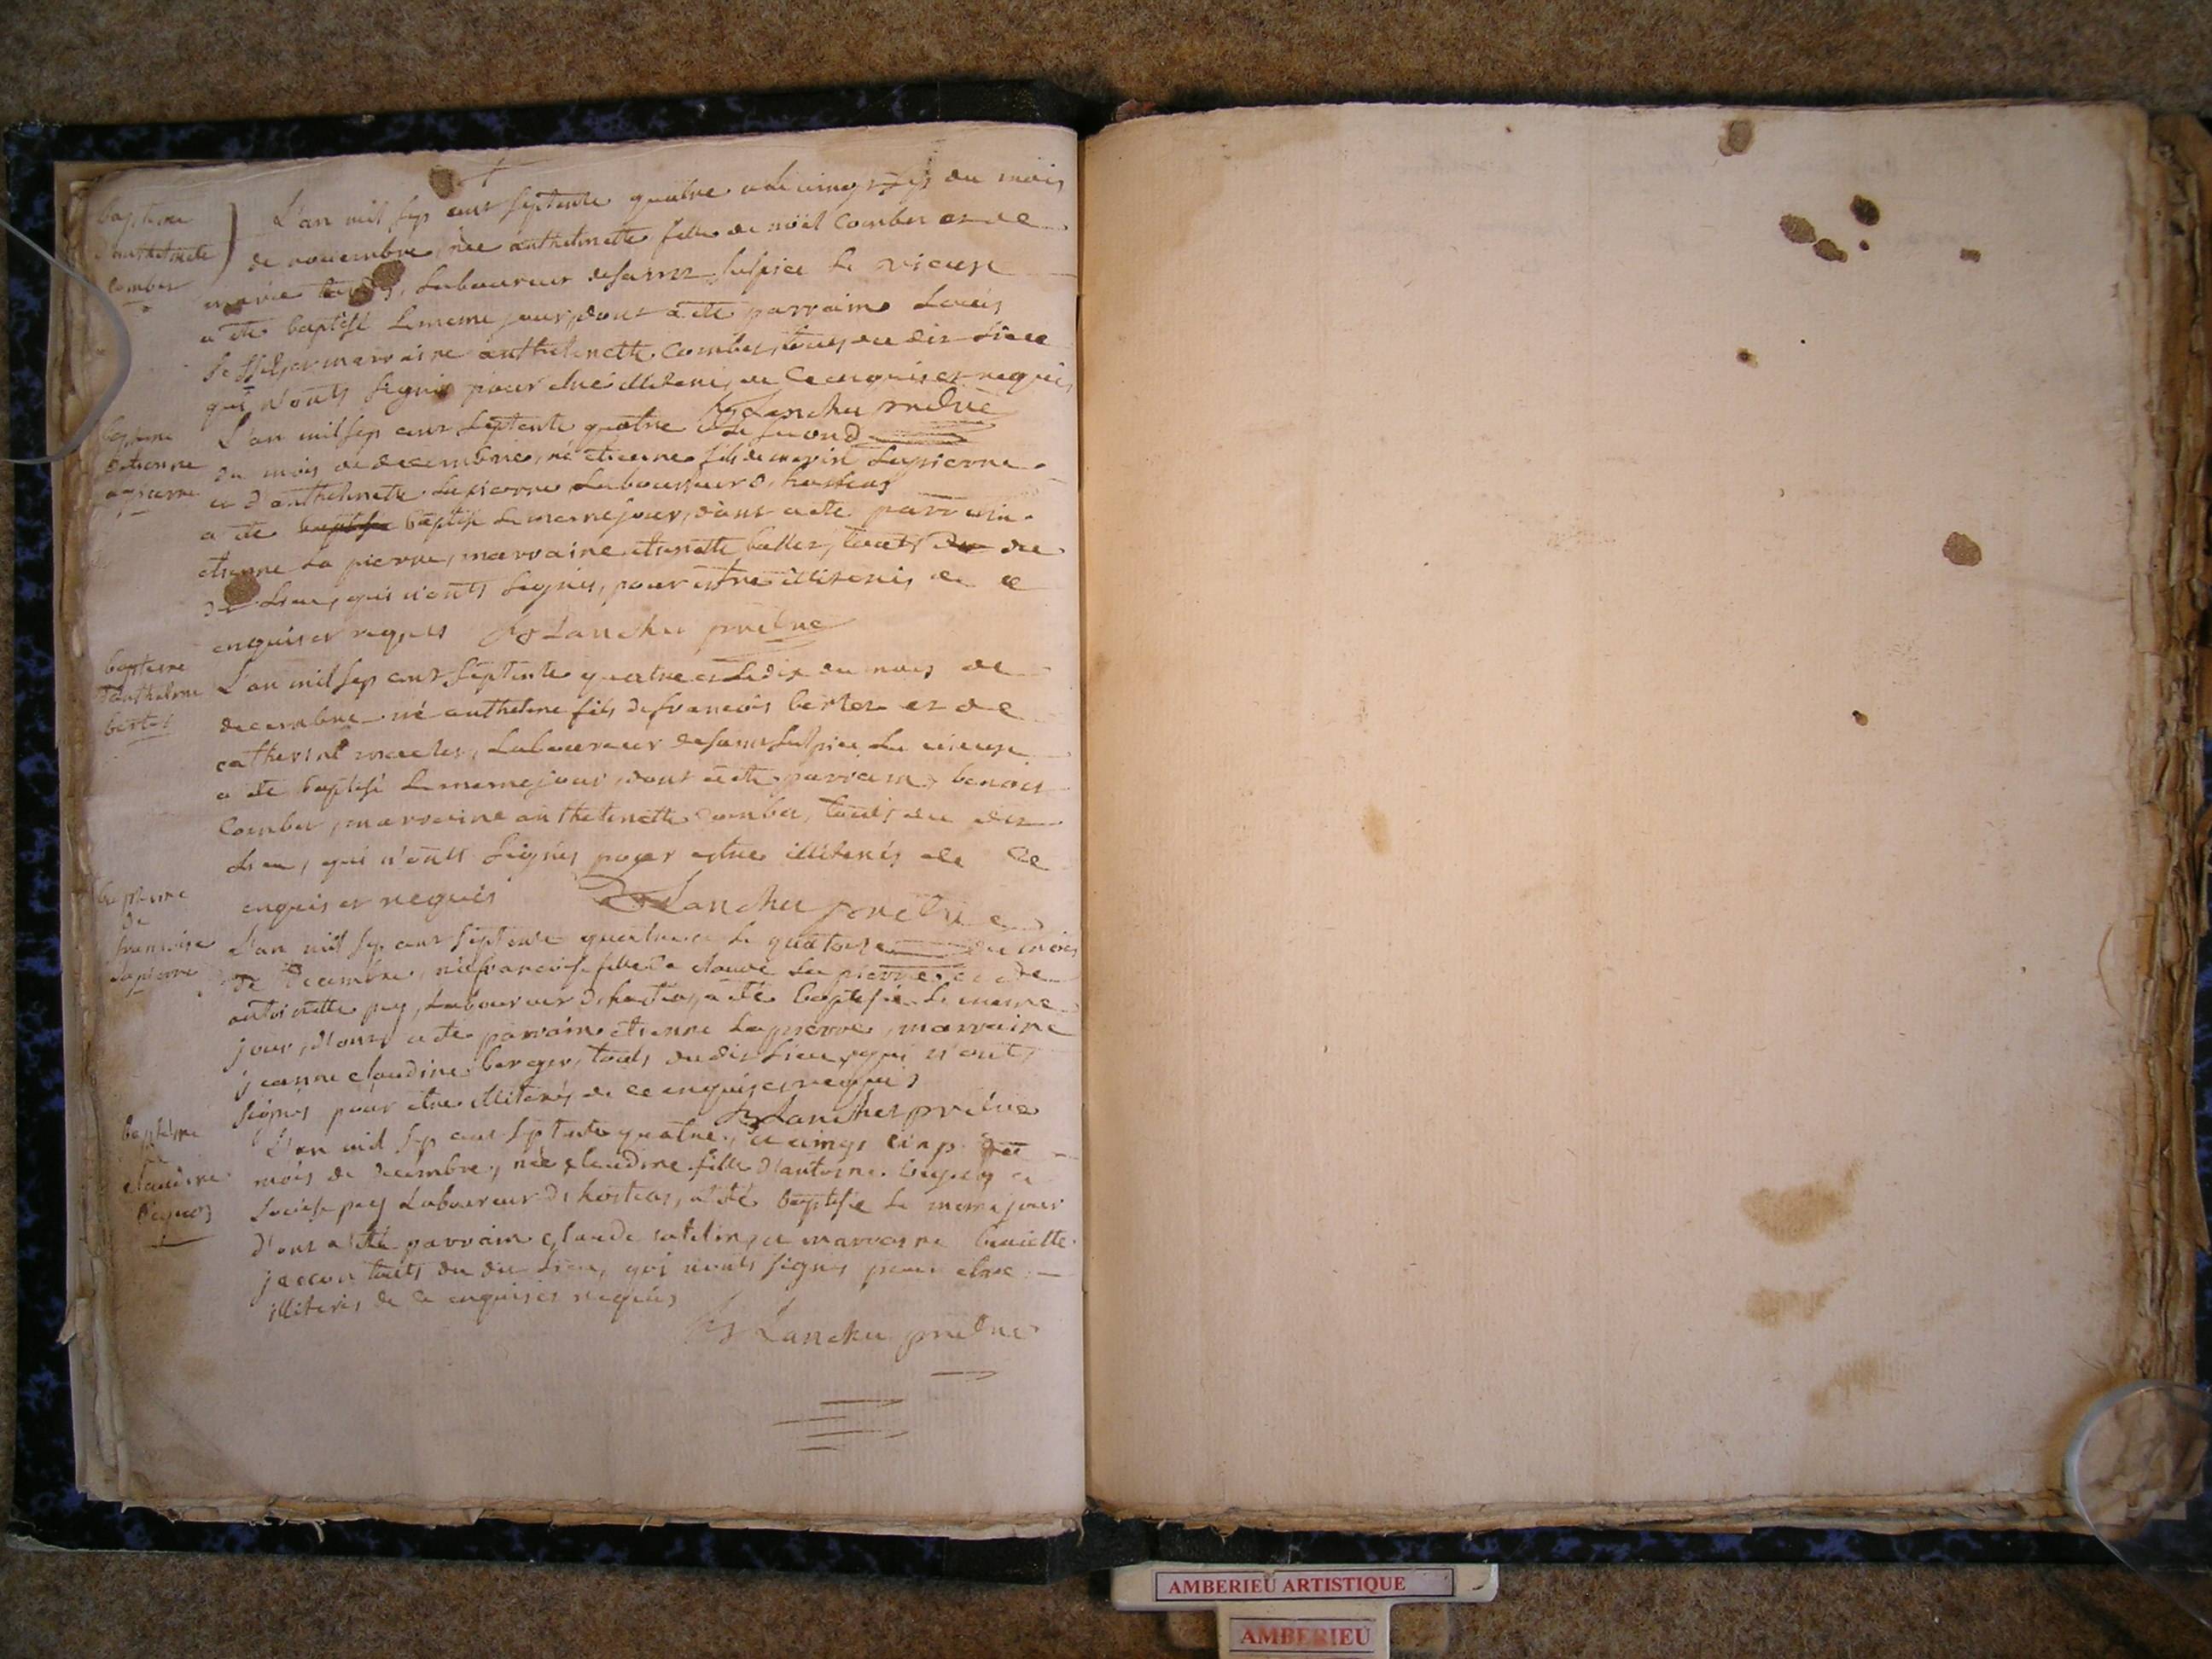 bapteme
d'anthelmette
comber
L'an mil sep cent septente quatre a le du mois
de novembre, née anthelmette fille de noël Comber et de
marie laboureur de saint sulpice le vieux
a éte baptisé le meme jour, dont a éte parrain Louis
et marraine anthelmette Comber, touts du dit Lieu
qui n'onts signés pour etre illiterés de ce enquis et requis
Lancher pretre
bapteme
d'etienne
lapierre
L'an mil sep cent septente quatre le second
du mois de decembre, né etienne fils de Lapierre
et d'anthelmette Lapierre Laboureur d'hostias
a éte baptisé le meme jour, dont a éte parrain
etienne La pierre, marraine etienette ballet, touts du
dit Lieu, qui n'onts signés, pour estre illiterés de ce
enquis et requis Lancher pretre
bapteme
d'anthelme
bertet
L'an mil sep cent septente quatre et le dix du mois de
decembre né anthelme fils de francois bertet et de
catherine Laboureur de saint sulpice le vieux
a éte baptisé le meme jour, dont a éte parrain benoit
Comber, marraine anthelmette Comber, touts du dit
Lieu, qui n'onts signés pour estre illiterés de ce
enquis et requis Lancher pretre
bapteme
de
francoise
Lapierre
L'an mil sep cent septente quatre et le quatorze du mois
de decembre, née francoise fille de claude La pierre et de
antoinette pey, Laboureur d'hostias, a éte baptisée le meme
jour, d'ont a éte parrain etienne Lapierre, marraine
jeanne claudine berger, touts du dit Lieu, qui n'onts
signés pour etre illiterés de ce enquis et requis
Lancher pretre
bapteme
de
claudine
L'an mil sep cent septente quatre, et cinq du
mois de decembre, née claudine fille d'antoine et
Louise pey Laboureur d'hostias, a été baptisée le meme jour
d'ont a été parrain claude et marraine
touts du dit Lieu, qui n'onts signés pour etre
illiterés de ce enquis et requis
Lancher pretre
AMBERIEU ARTISTIQUE
AMBERIEU